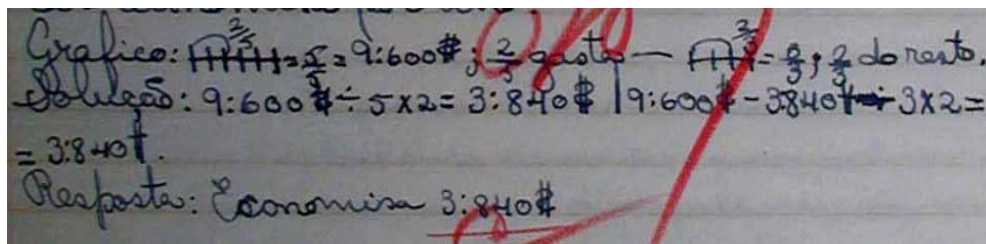 Grafico: 2/5 = 5/5 = 9:600$; 2/5 gasto — 2/3 = 3/3; 2/3 do resto.
Solução: 9:600$ ÷ 5 x 2 = 3:840$ | 9:600$ - 3840$ ÷ 3 x 2 =
= 3:840$.
Resposta: Economisa 3:840$